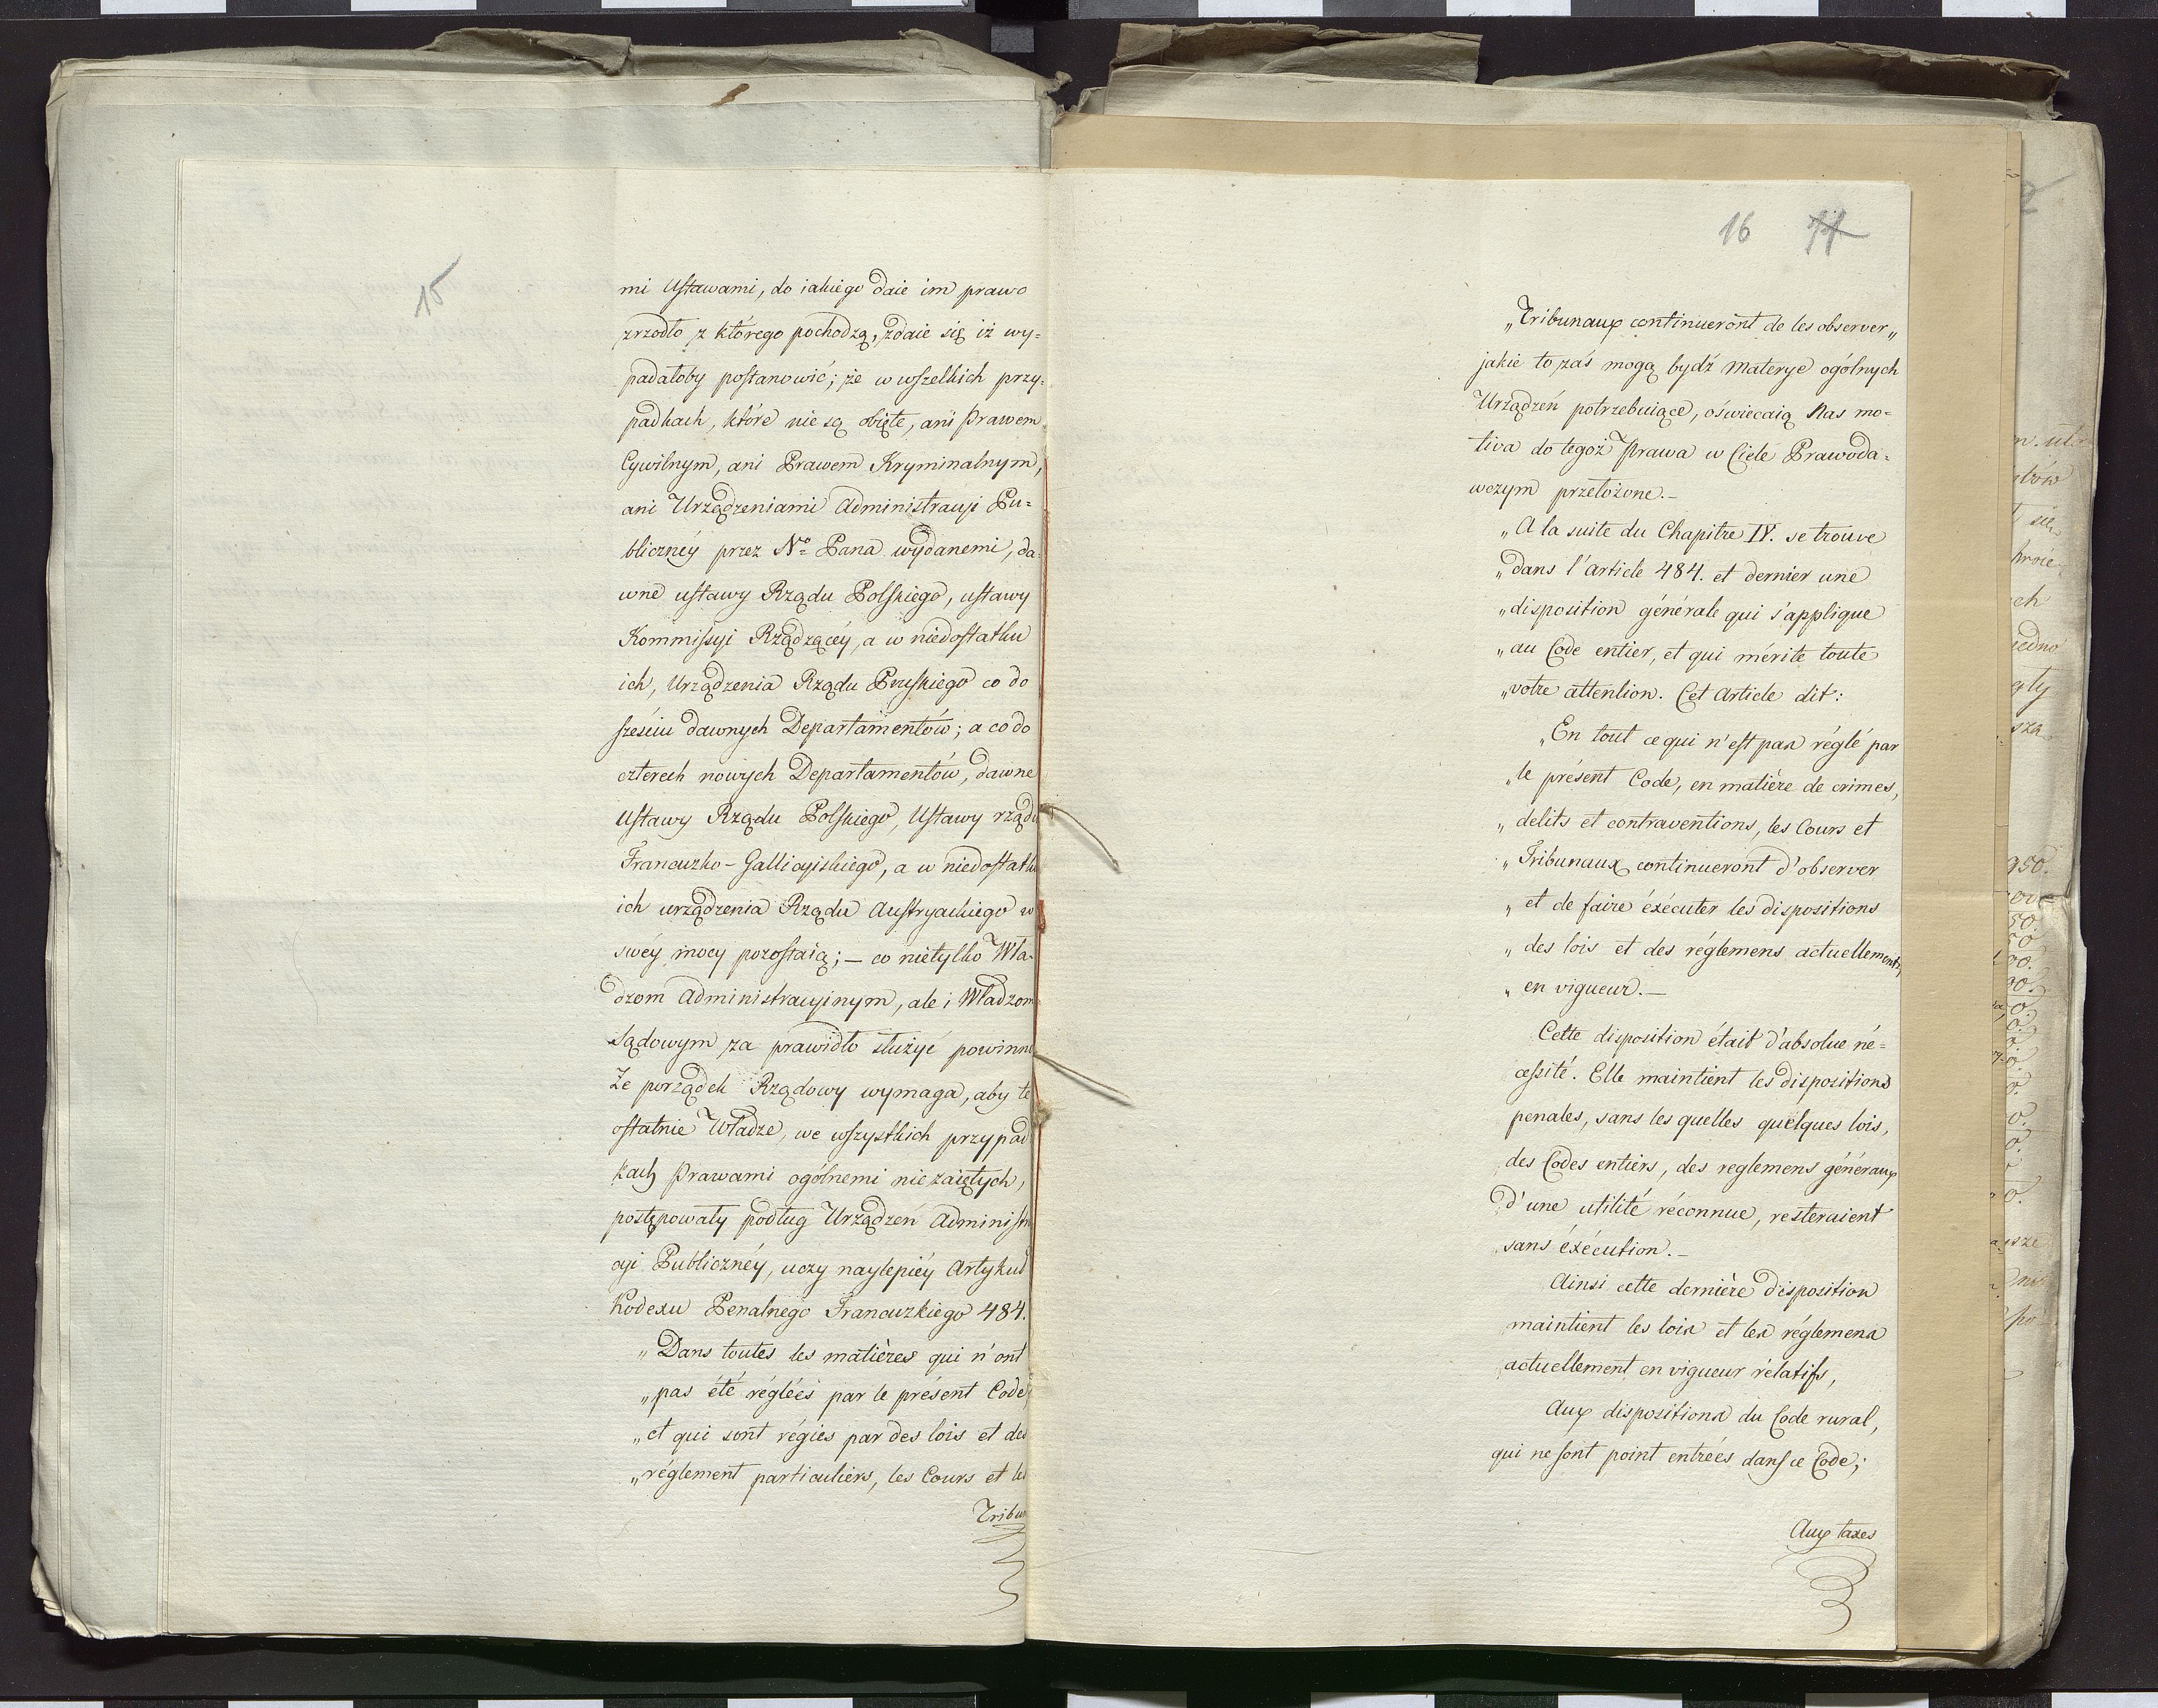 15
mi Ustawami, do iakiego daie im prawo
zrzodło z którego pochodzą, zdaie się iż wy=
padałoby postanowić; że w wszelkich przy=
padkach, które nie są obięte, ani Prawem
Cywilnym, ani Prawem Kryminalnym,
ani Urządzeniami Administracyi Pu=
blicznéy przez Nº Pana wydanemi, da=
wne ustawy Rządu Polskiego, ustawy
Kommissyi Rządzącéy, a w niedostatku
ich, Urządzenia Rządu Pruskiego co do
sześciu dawnych Departamentów; a co do
czterech nowych Departamentów, dawne
Ustawy Rządu Polskiego, Ustawy rządu
Francuzko-Gallicyiskiego, a w niedostatku
ich urządzenia Rządu Austryackiego w
swéy mocy pozostaią; — co nietylko Wła=
dzom Administracyinym, ale i Władzom
Sądowym za prawidło służyć powinno
Ze porządek Rządowy wymaga, aby te
ostatnie Władze, we wszystkich przypad
kach Prawami ogólnemi nie zaiętych,
postępowały podług Urządzeń Administra
cyi Publicznéy, uczy naylepiéy Artykuł
Kodexu Penalnego Francuzkiego 484.
„Dans toutes les matières qui n'ont
„pas été réglées par le présent Code,
„et qui sont régies par des lois et des
„réglement particuliers, les Cours et les
Tribu
16 11
„Tribunaux continueront de les observer„
jakie to zaś mogą bydź materye ogólnych
Urządzeń potrzebuiące, oświecaią Nas mo=
tiva do tegoż Prawa w Ciele Prawoda=
wczym przełożone.—
„A la suite du Chapitre IV. se trouve
„dans l'article 484. et dernier une
„disposition générale qui s'applique
„au Code entier, et qui mérite toute
„votre attention. Cet Article dit:
„En tout ce qui n'est pas réglé par
„le présent Code, en matière de crimes,
„delits et contraventions, les Cours et
„Tribunaux continueront d'observer
„et de faire éxécuter les dispositions
„des lois et des réglemens actuellement„
„en vigueur.—
Cette disposition était d'absolue né=
cessité. Elle maintient les dispositions
penales, sans les quelles quelques lois,
des Codes entiers, des reglemens généraux
d'une utilité réconnue, resteraient
sans éxécution.—
Ainsi cette dernière disposition
maintient les lois et les réglemens
actuellement en vigueur rélatifs,
Aux dispositions du Code rural,
qui ne sont point entrées dans ce Code;
Aux taxes